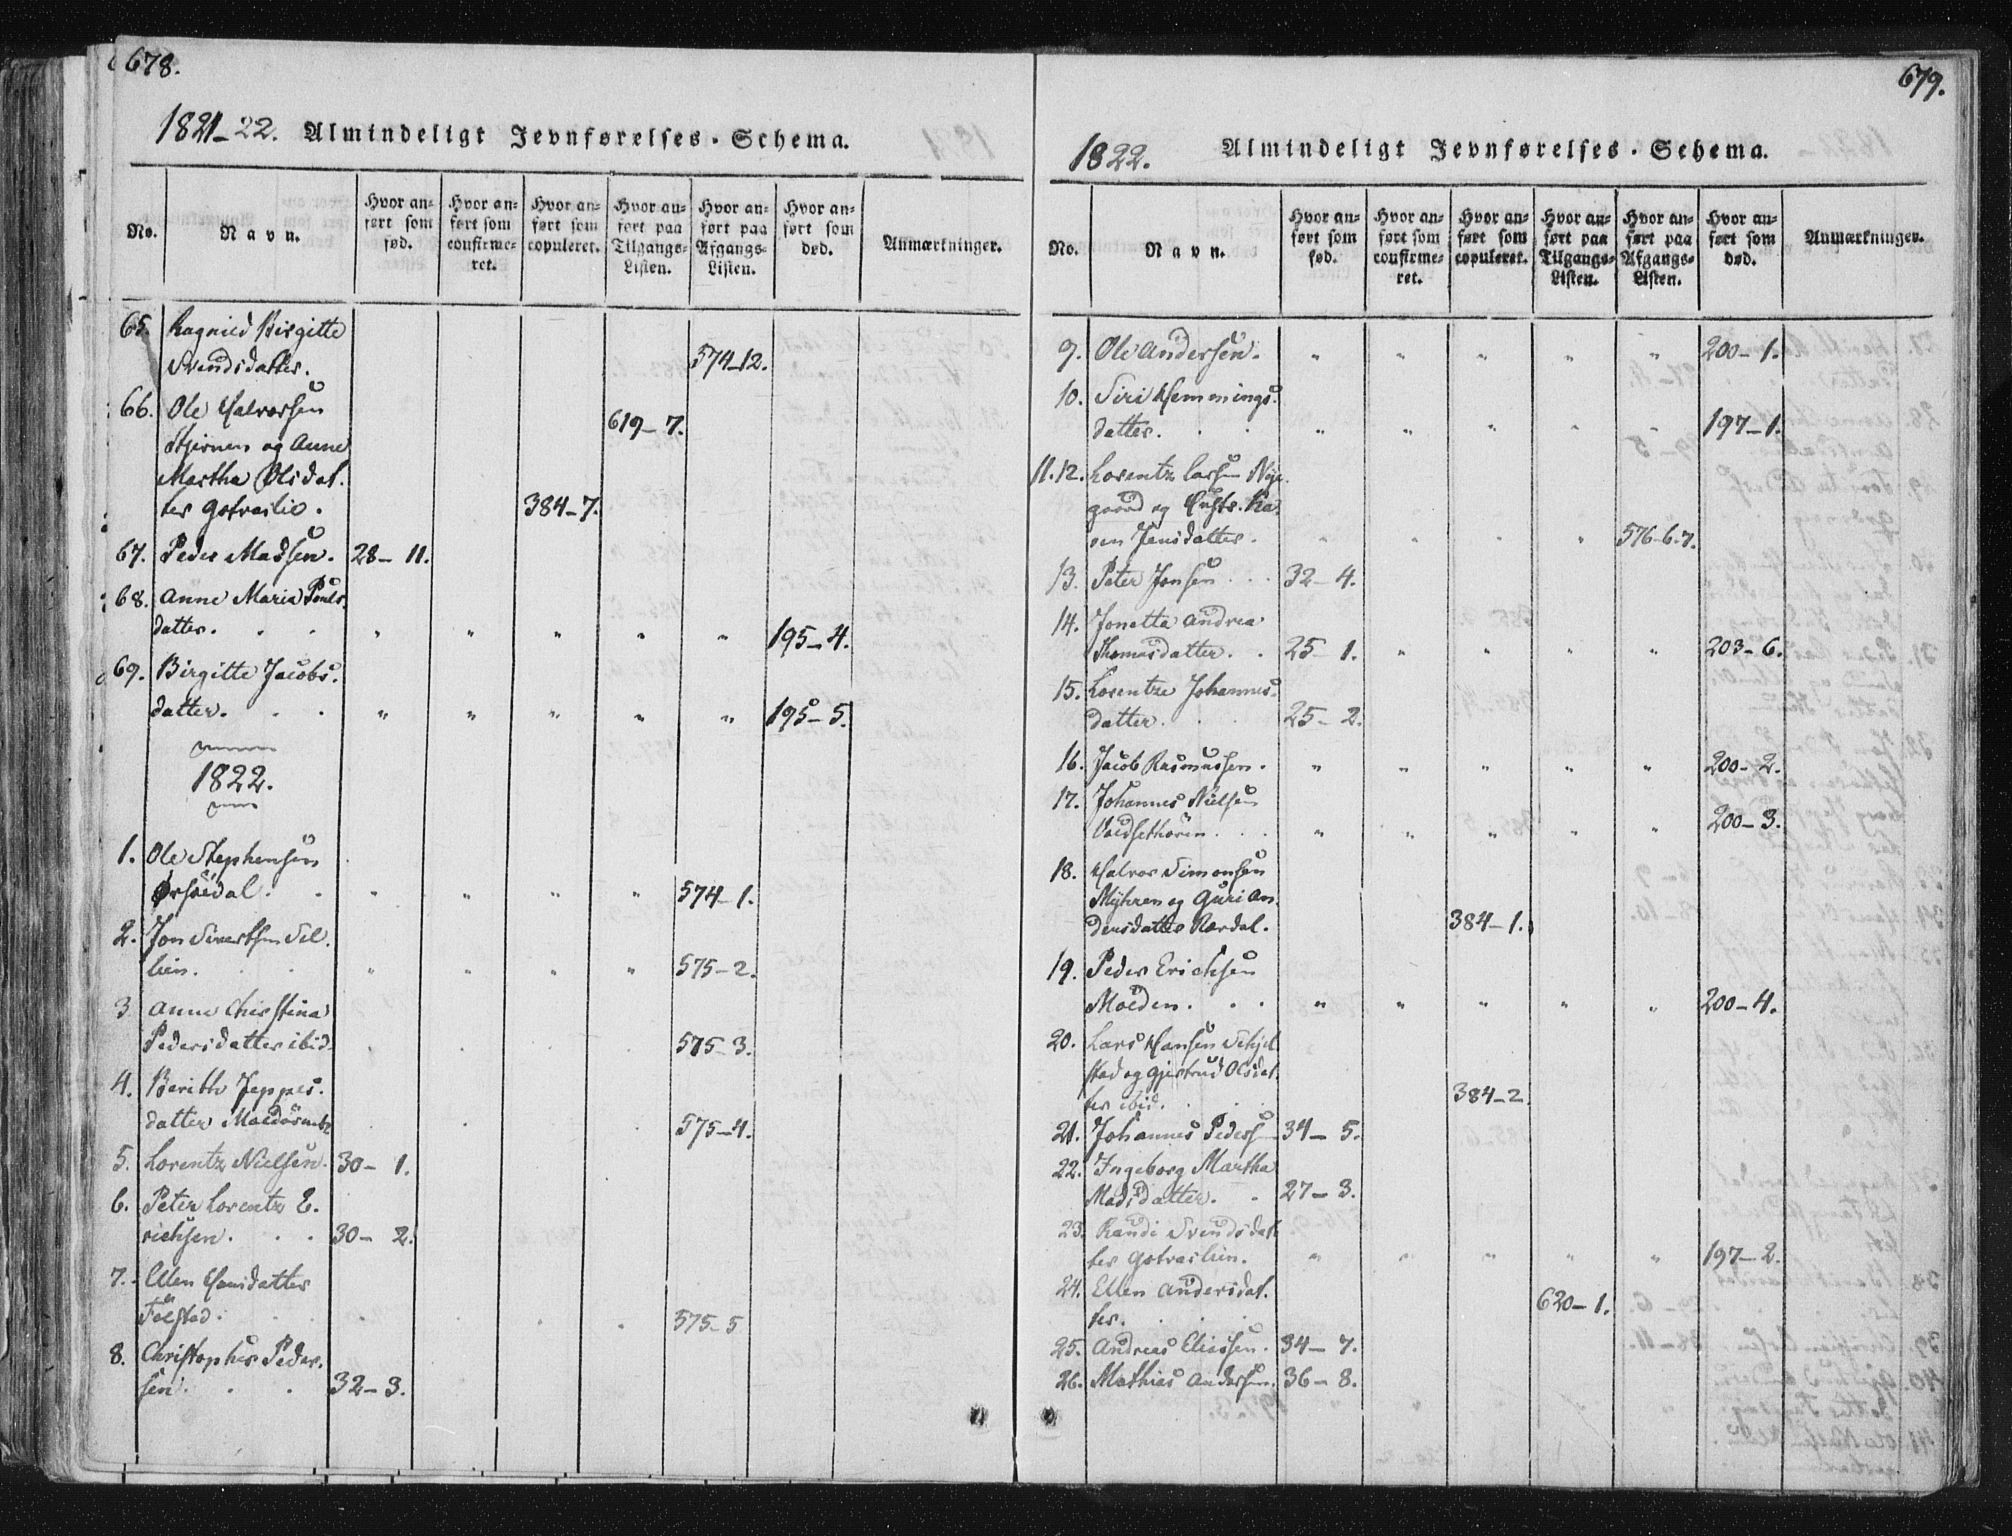 678.
1821-22. Almindeligt Jevnførelses-Schema.
No.
Navn.
Hvor anført som fød.
Hvor anført som confirmeret.
Hvor anført som copuleret.
Hvor anført paa Tilgangs-Listen.
Hvor anført paa Afgangs-Listen.
Hvor anført som død.
Anmærkninger.
65. Ragnild Birgitte
Svendsdatter. 574-12.
66. Ole Halvorsen 619-7.
og Anne
Martha Olsdat-
ter Gotvaslie. 384-7.
67. Peder Madsen. 28-11.
68. Anne Maria Pouls
datter. . . " " " " " 195-4.
69. Birgitte Jacobs-
datter. . . " " " " " 195-5.
1822.
1. Ole Stephensen
. . " " " " 574-1.
2. Jon Sivertsen Sel-
lien. . . " " " " 575-2.
3 Anne Christina
Pedersdatter ibid. 575-3.
4. Berith Jeppes-
datter 575-4.
5. Lorentz Nielsen. 30-1.
6. Peter Lorentz E-
richsen. . . 30-2.
7. Ellen Hansdatter
575-5
8. Christopher Peder-
sen. . . 32-3.
679.
1822. Almindeligt Jevnførelses-Schema.
No.
Navn.
Hvor anført som fød.
Hvor anført som confirmeret.
Hvor anført som copuleret.
Hvor anført paa Tilgangs-Listen.
Hvor anført paa Afgangs-Listen.
Hvor anført som død.
Anmærkninger.
9. Ole Andersen. " " " " " 200-1.
10. Siri Hemmings-
datter. . . " " " " " 197-1.
11.12. Lorentz Larsen Nye-
gaard og Hustr. Ka-
ren Jensdatter. " " " " 576-6-7.
13. Peter Jonsen . . . 32-4.
14. Jonetta Andrea
Thomasdatter. . 25-1. " " " " 203-6.
15. Lorentze Johannes-
datter. . . 25-2.
16. Jacob Rasmussen. " " " " " 200-2.
17. Johannes Nielsen
. . . " " " " " 200-3.
18. Halvor Simonsen
Myhren og Guri An-
dersdatter Rørdal. 384-1.
19. Peder Erichsen
Moeden. . . " " " " " 200-4.
20. Lars Hansen Schjel-
stad og Gjertrud Olsdat-
ter ibid. . . 384-2.
21. Johannes Pedersen 34-5.
22. Ingeborg Martha
Madsdatter. . 27-3.
23. Randi Svendsdat-
ter Gotvaslien. " " " " " 197-2.
24. Ellen Andersdat-
ter. . . . 620-1.
25. Andreas Elissen. 34-7.
26. Mathias Andersen. 36-8.